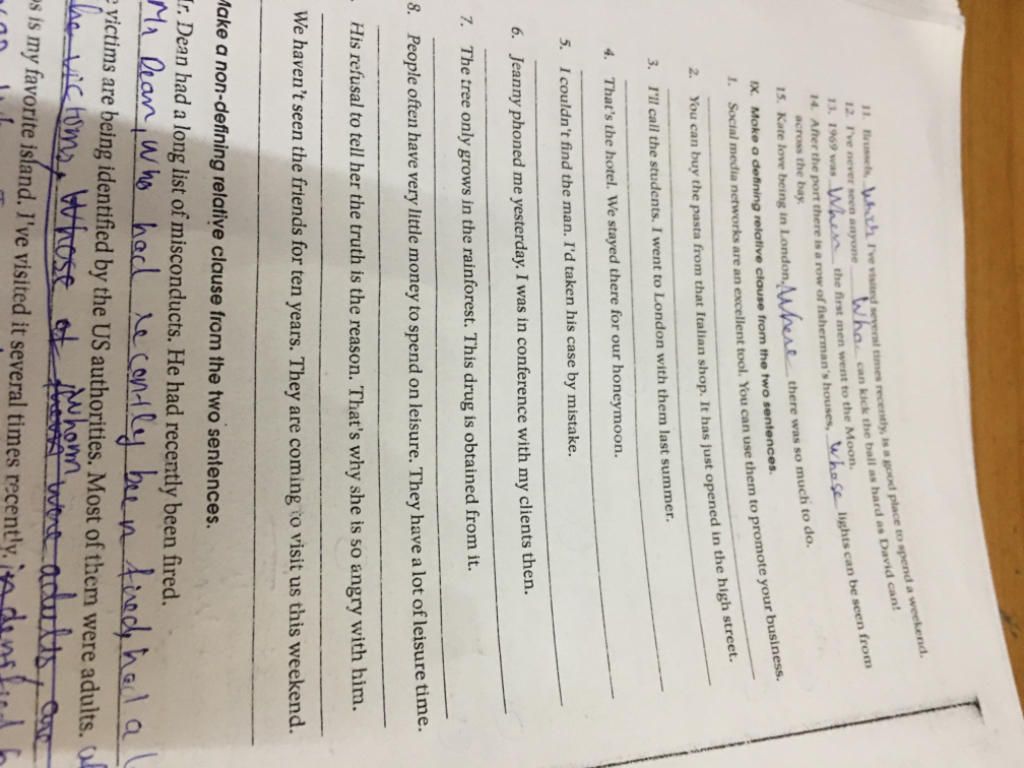 11. Brussels, I've visited several times recently, is a good place to spend a weekend.
12. I've never seen anyone Who can kick the ball as hard as David can!
13. 1969 was When the first men went to the Moon.
14. After the port there is a row of fisherman's houses, whose lights can be seen from
across the bay.
15. Kate love being in London, Where there was so much to do.
IX. Make a defining relative clause from the two sentences.
1. Social media networks are an excellent tool. You can use them to promote your business.
2. You can buy the pasta from that Italian shop. It has just opened in the high street.
3. I'll call the students. I went to London with them last summer.
4. That's the hotel. We stayed there for our honeymoon.
5. I couldn't find the man. I'd taken his case by mistake.
6. Jeanny phoned me yesterday. I was in conference with my clients then.
7. The tree only grows in the rainforest. This drug is obtained from it.
8. People often have very little money to spend on leisure. They have a lot of leisure time.
His refusal to tell her the truth is the reason. That's why she is so angry with him.
We haven't seen the friends for ten years. They are coming to visit us this weekend.
Make a non-defining relative clause from the two sentences.
Mr. Dean had a long list of misconducts. He had recently been fired.
Mr Dean, who had recently been fired, had a
victims are being identified by the US authorities. Most of them were adults.
whom
the victoms, Whose of were adults, are
is my favorite island. I've visited it several times recently.